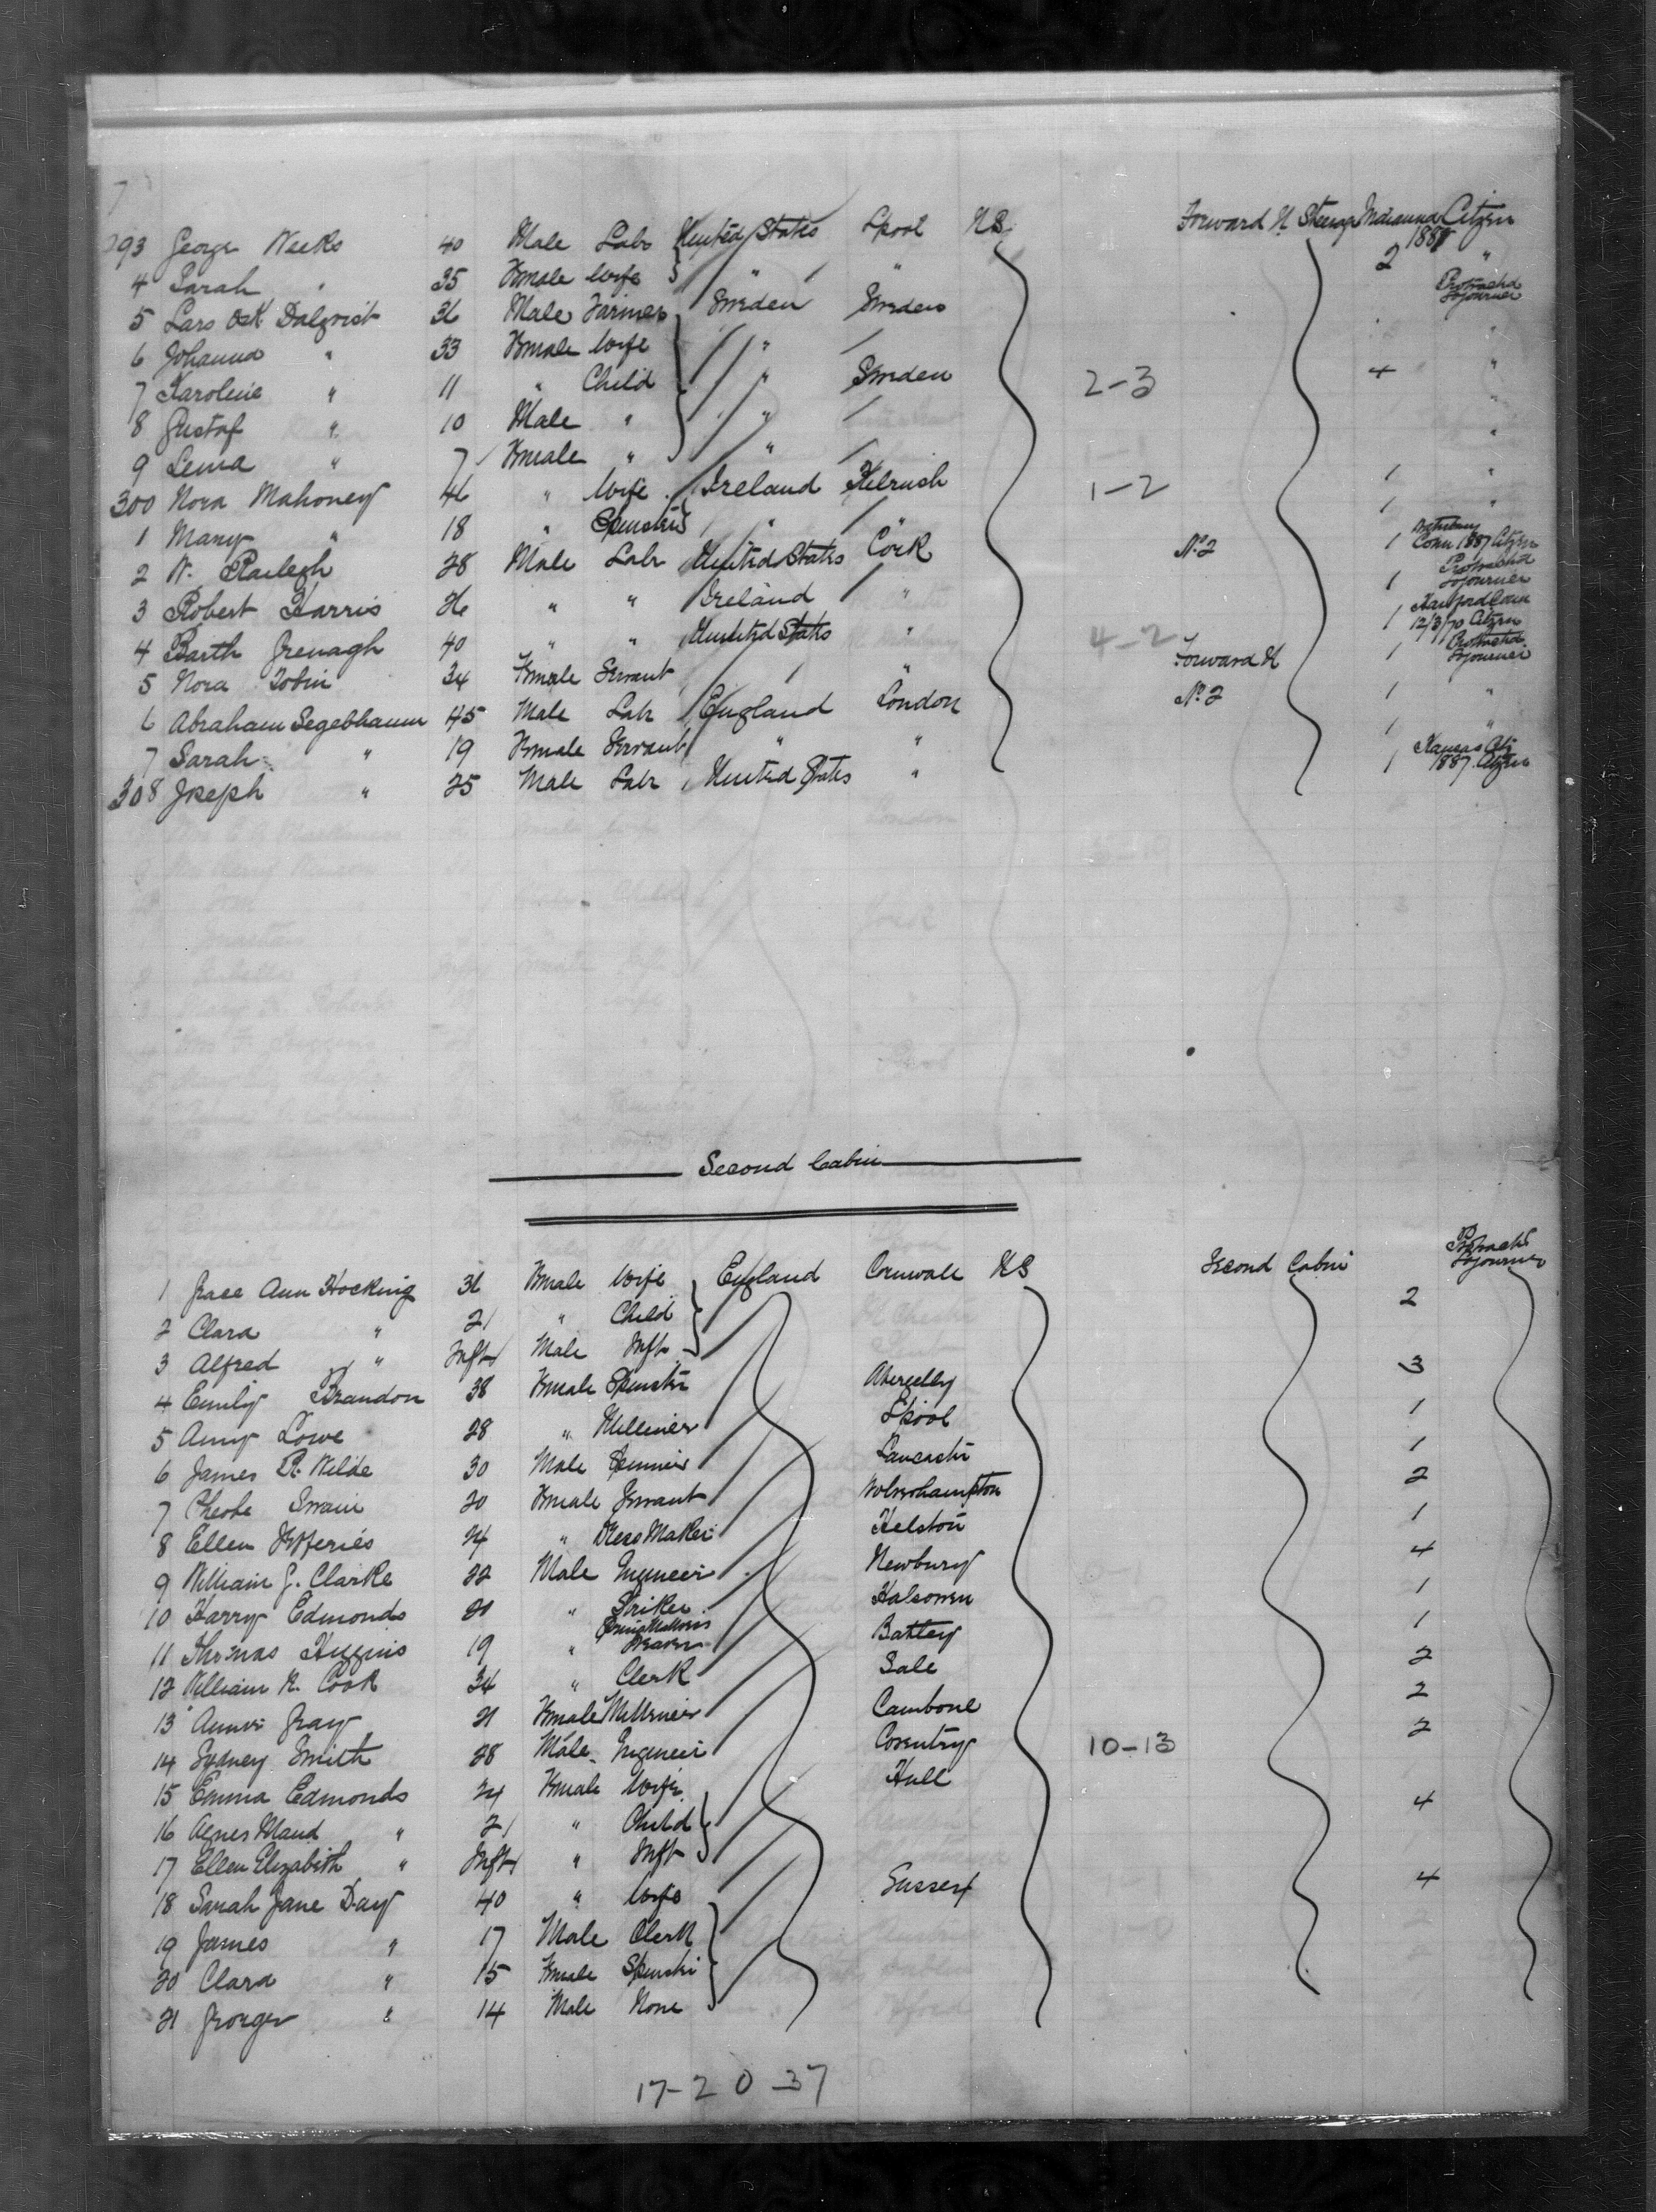 293 George Weeks 40 Male Labr United States Lpool U.S. Forward H Steerage Citizen
1887
4 Sarah " 35 Female Wife " " 2 "
5 Lars Dalqvist 36 Male Farmer Sweden Sweden Protracted Sojourner
6 Johanna " 33 Female Wife " "
7 Karoline " 11 " Child " Sweden 2-3 4 "
8 Gustaf " 10 Male " " "
9 Lema " 7 Female " " "
300 Nora Mahoney 46 " Wife Ireland Kilrush 1-2 1 "
1 Mary " 18 " Spinster " 1 "
2 W. Railegh 28 Male Labr United States Cork No 2 1 Conn 1887 Citizen
3 Robert Harris 26 " " Ireland " 1 Protracted Sojourner
4 Barth Grenagh 40 " " United States " 4-2 1 Hartford Conn 12/3/70 Citizen
5 Nora Tobin 34 Female Servant " Forward H 1 Protracted Sojourner
6 Abraham Segebhaum 45 Male Labr England London No 2 1 "
7 Sarah " 19 Female Servant " " 1 "
308 Joseph " 25 Male Labr United States " 1 Kansas City 1887 Citizen
Second Cabin
1 Grace Ann Hocking 36 Female Wife England Cornwall U.S Second Cabin 2 Protracted Sojourner
2 Clara " 2 " Child
3 Alfred " Inft Male Inft 3
4 Emily Brandon 38 Female Spinster Abergelly
5 Amy Lowe 28 " Milliner Lpool 1
6 James R. Wilde 30 Male Spinner Lancaster 1
7 Pheobe Swain 20 Female Servant Wolverhampton 2
8 Ellen Jefferies 24 " Dress Maker Helston 1
9 William J. Clarke 22 Male Engineer Newbury 4
10 Harry Edmonds 21 " Striker Halsowen 1
11 Thomas Huggins 19 " Weaver Battey 1
12 William R. Cook 34 " Clerk Sale 2
13 Annie Gray 21 Female Milliner Cambone 2
14 Sydney Smith 28 Male Engineer Coventry 10-13 2
15 Emma Edmonds 24 Female Wife Hull
16 Agnes Maud " 2 " Child 4
17 Ellen Elizabeth " Inft " Inft
18 Sarah Jane Day 40 " Wife Sussex 4
19 James " 17 Male Clerk
20 Clara " 15 Female Spinster
21 George " 14 Male None
17-2 0-37